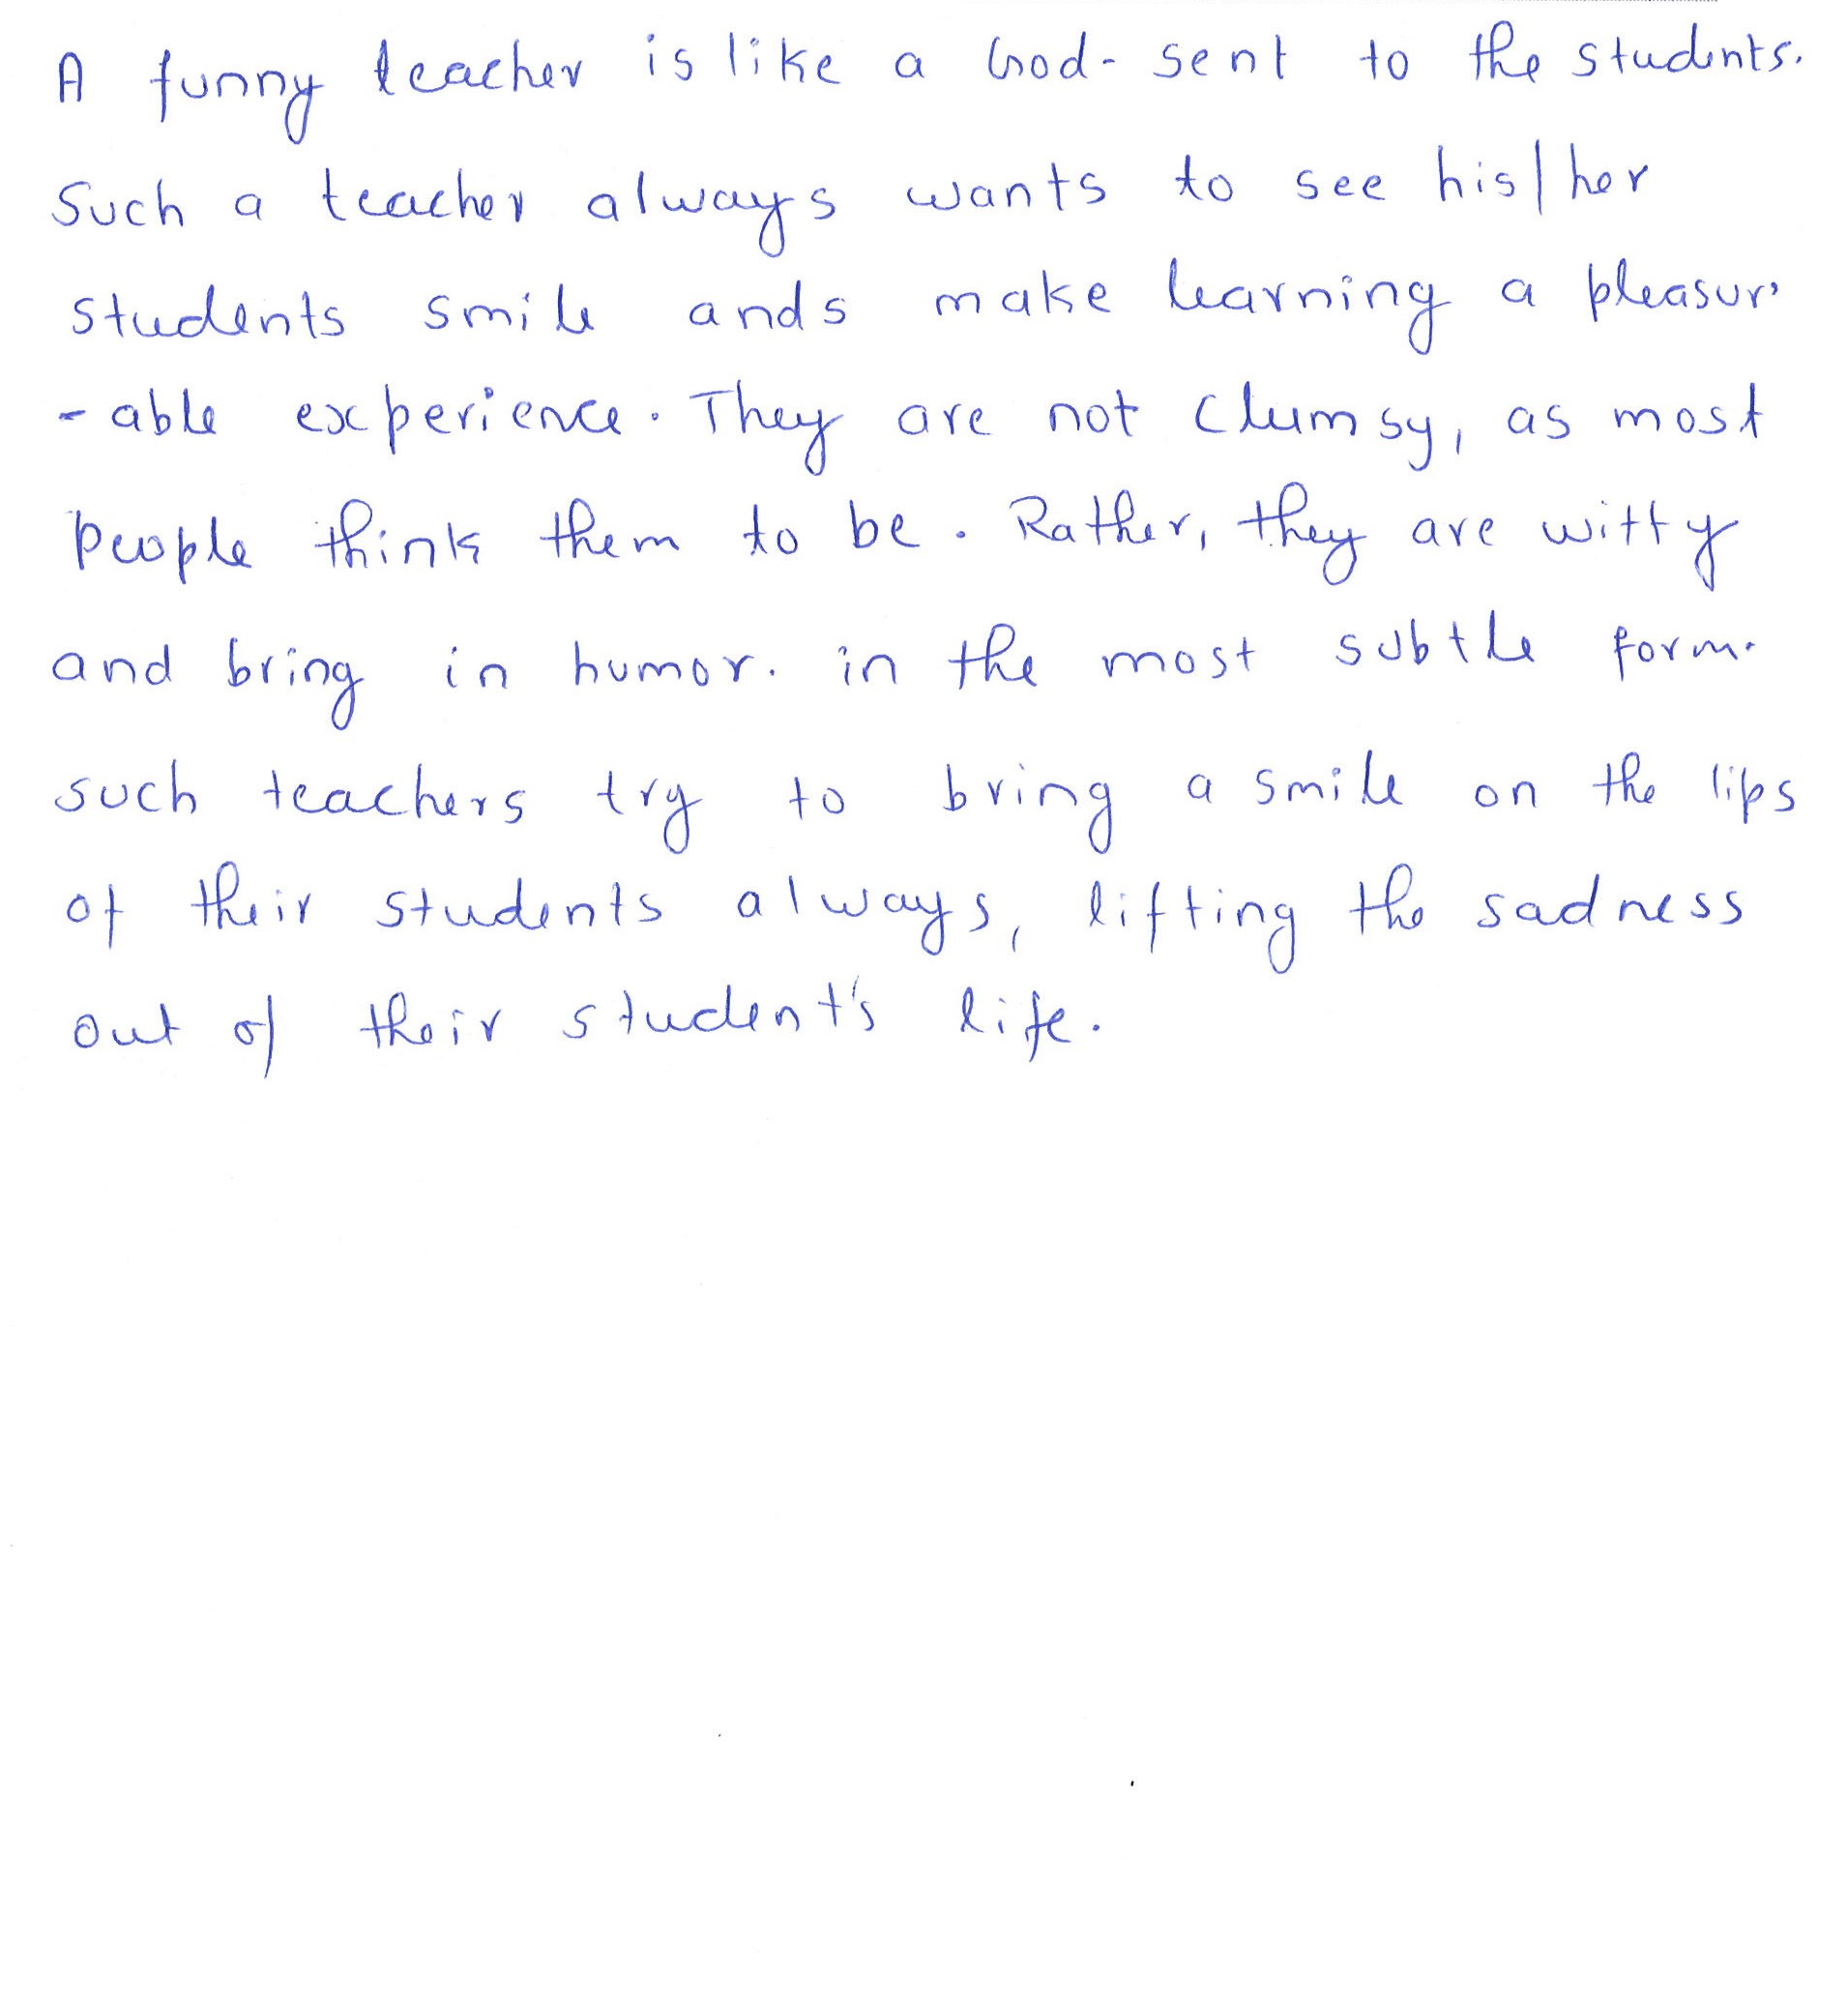 A funny teacher is like a God-sent to the students.
Such a teacher always wants to see his/her
students smile ands make learning a pleasur-
-able experience. They are not clumsy, as most
people think them to be. Rather, they are witty
and bring in humor. in the most subtle form.
such teachers try to bring a smile on the lips
of their students always, lifting the sadness
out of their student's life.